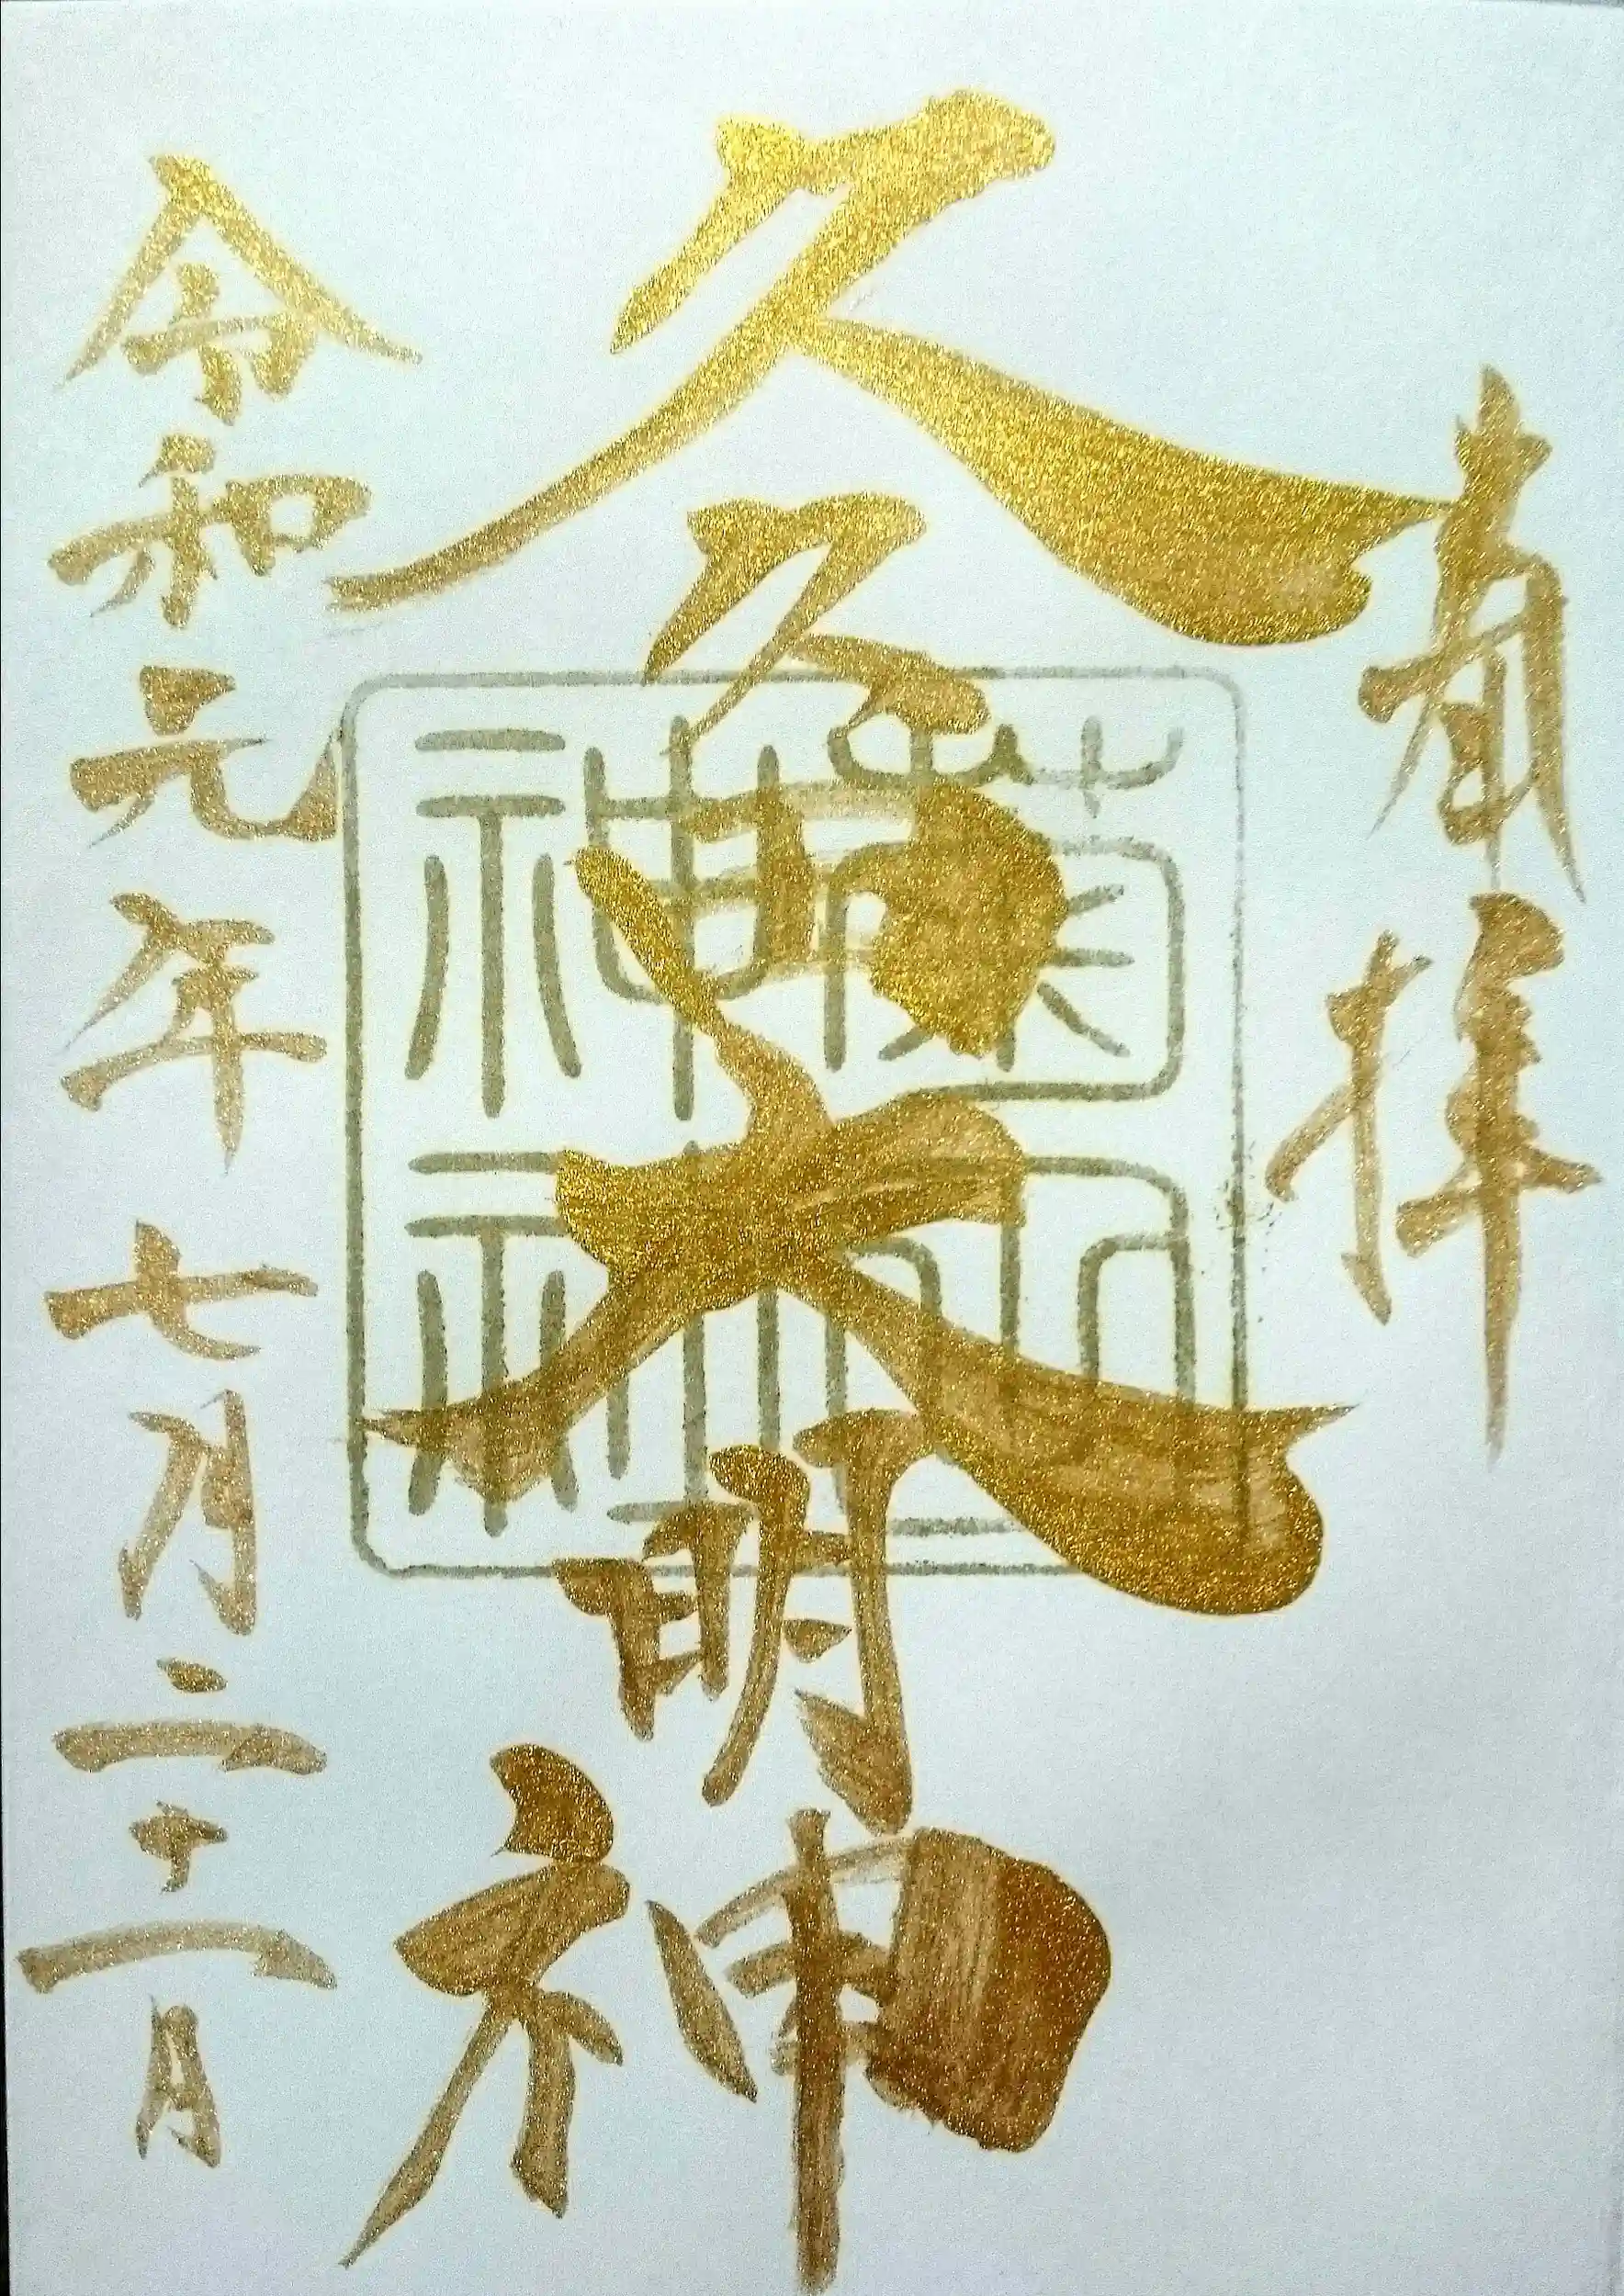 奉拝
久久田大明神
菊田
神社
令和元年七月二十一日